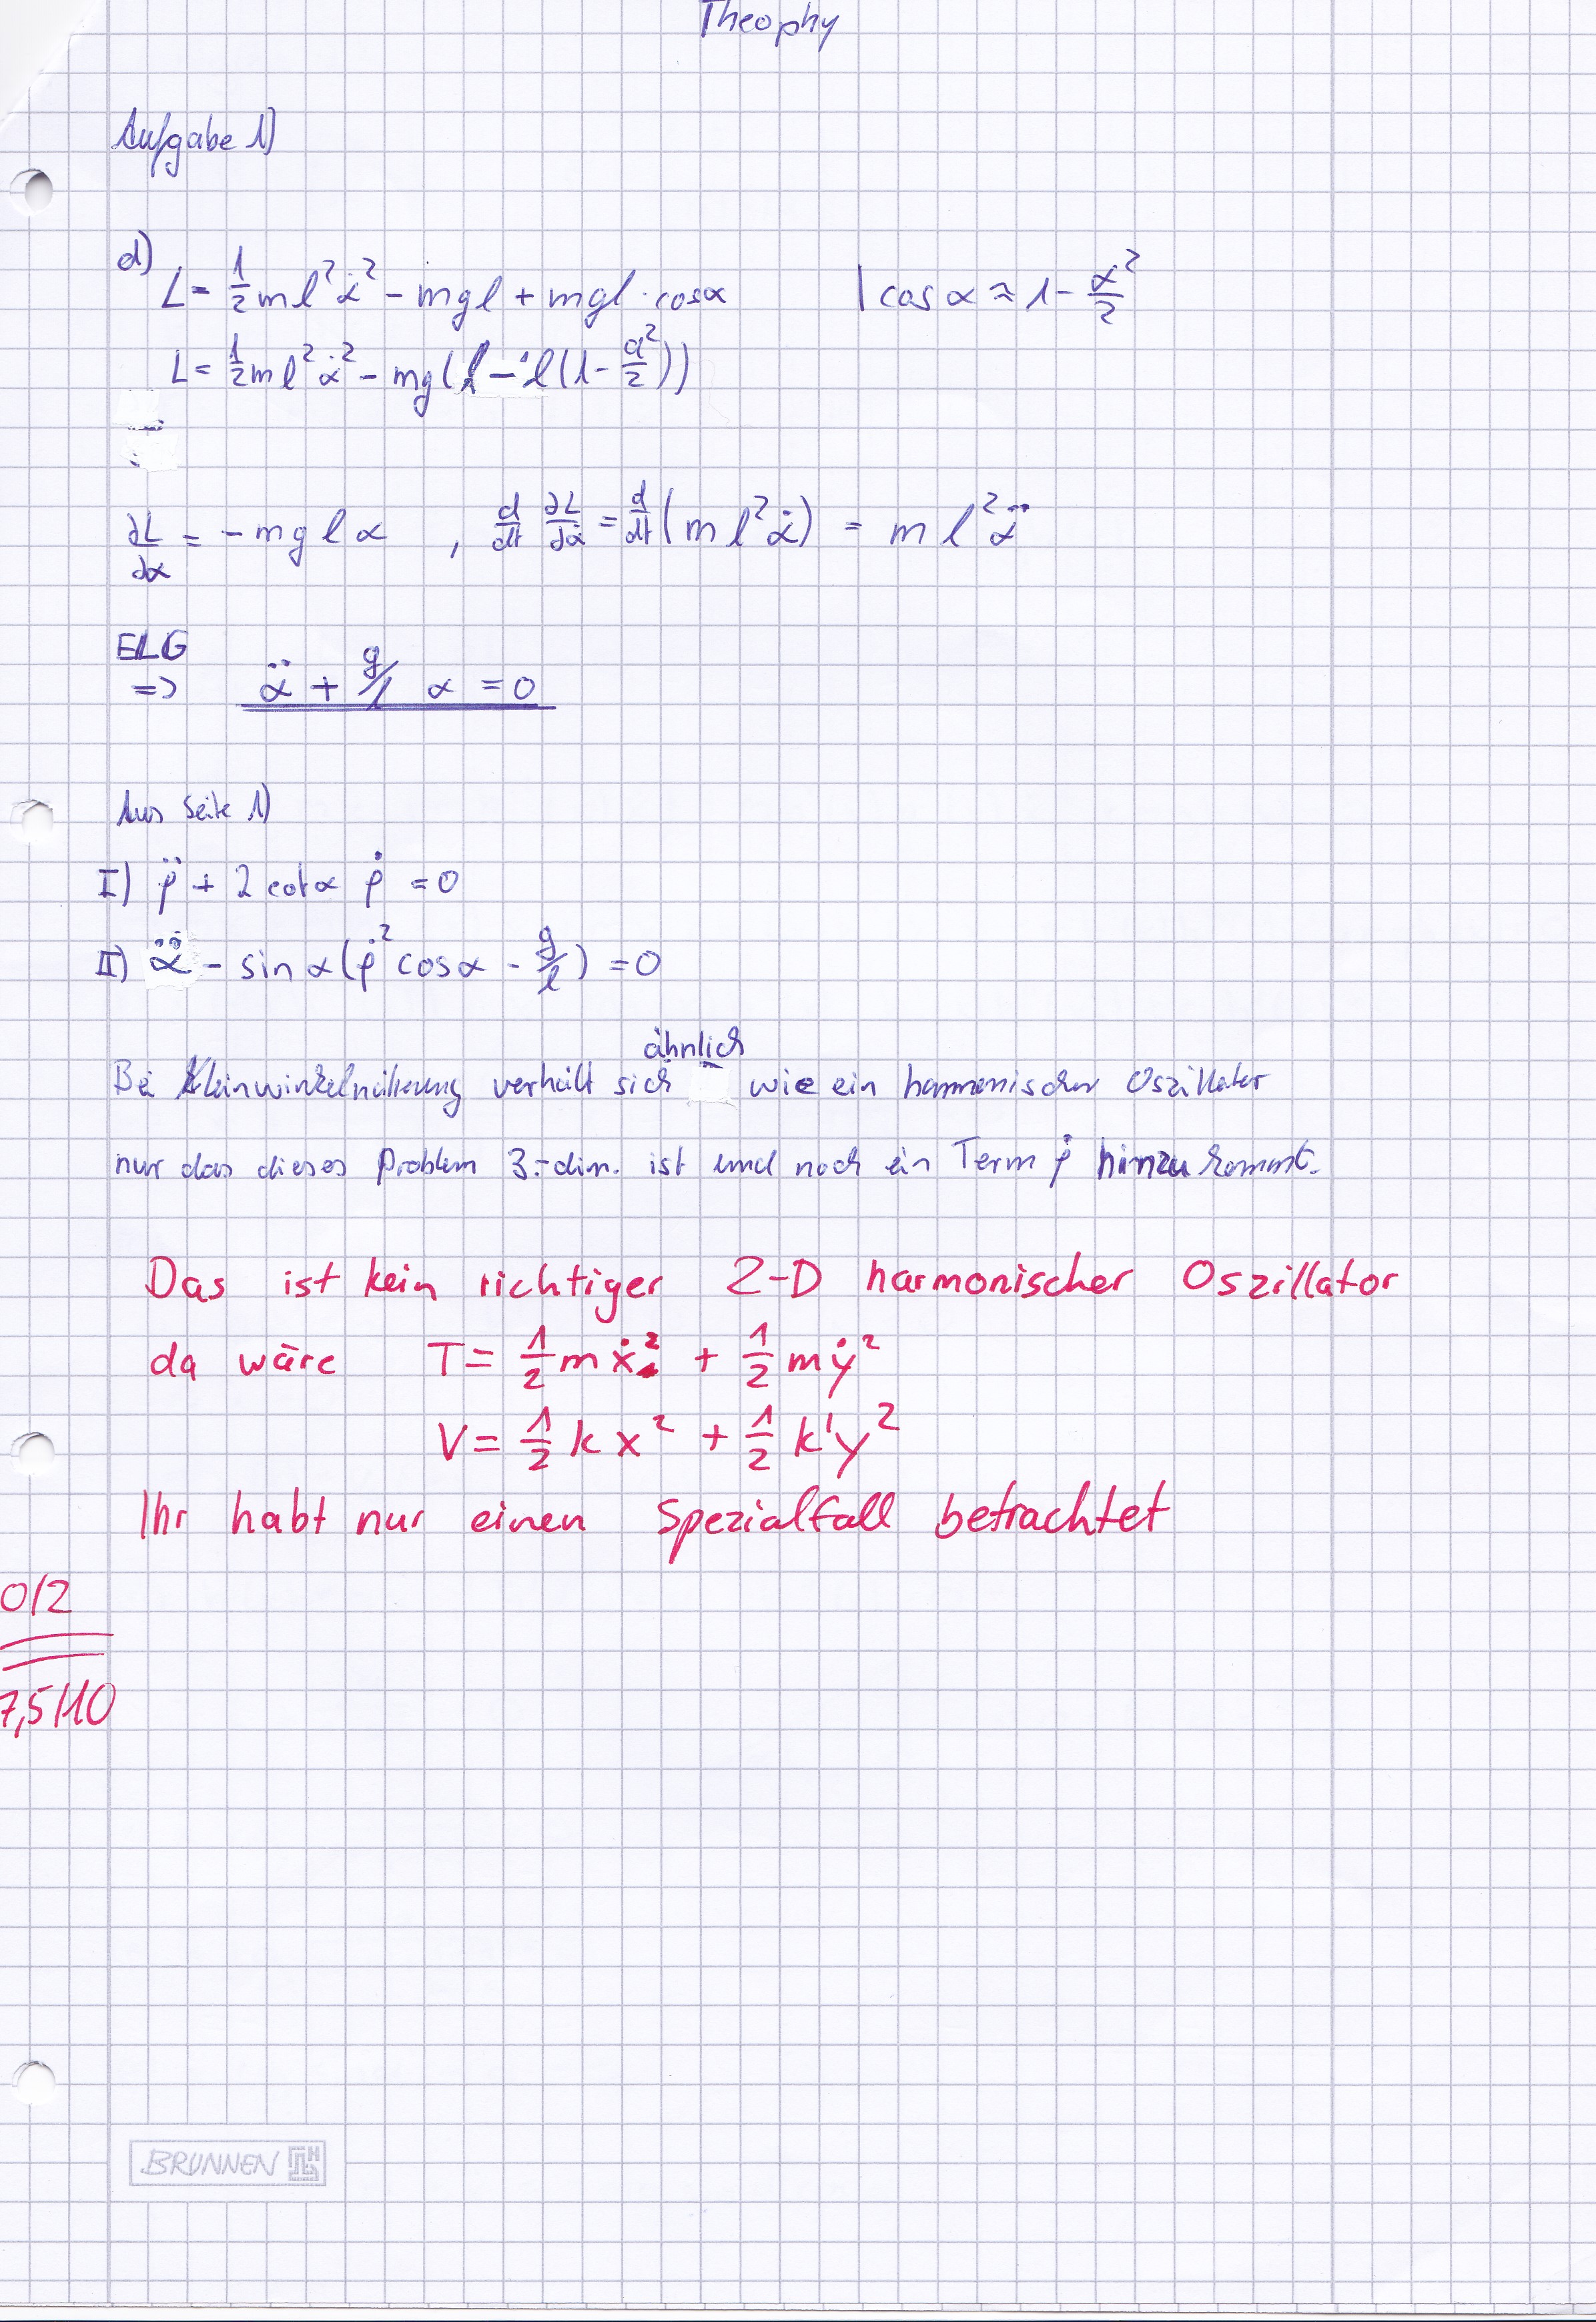 Theophy
Aufgabe 1)
d) L = 1/2 m l² α̇² - mgl + mgl · cosα | cos α ≈ 1 - α²/2
L = 1/2 m l² α̇² - mg(l - l(1 - α²/2))
∂L/∂α = - m g l α , d/dt ∂L/∂α̇ = d/dt (m l² α̇) = m l² α̈
ELG
=> α̈ + g/l α = 0
Aus Seite 1)
I) ρ̈ + 2 cotα ρ̇ = 0
II) α̈ - sin α (ρ̇² cosα - g/l) = 0
Bei Kleinwinkelnäherung verhält sich ähnlich wie ein harmonischer Oszillator
nur das dieses Problem 3.-dim. ist und noch ein Term ρ̇ hinzu kommt.
Das ist kein richtiger 2-D harmonischer Oszillator
da wäre T = 1/2 m ẋ² + 1/2 m ẏ²
V = 1/2 k x² + 1/2 k' y²
Ihr habt nur einen Spezialfall betrachtet
0/2
7,5/10
BRUNNEN